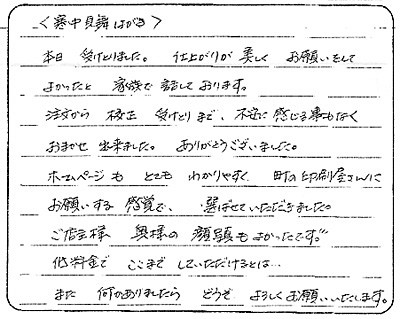 ＜寒中見舞はがき＞
本日 受けとりました。 仕上がりが 美しく お願いをして
よかったと 家族で 話しております。
注文から 校正 受けとりまで、不安に 感じる事もなく
おまかせ 出来ました。 ありがとうございました。
ホームページも とても わかりやすく、町の印刷屋さんに
お願いする 感覚で、 選ばせていただきました。
ご店主様 奥様の 顔もよかったです。"
低料金で ここまで していただけるとは…
また 何かありましたら どうぞ よろしくお願いいたします。